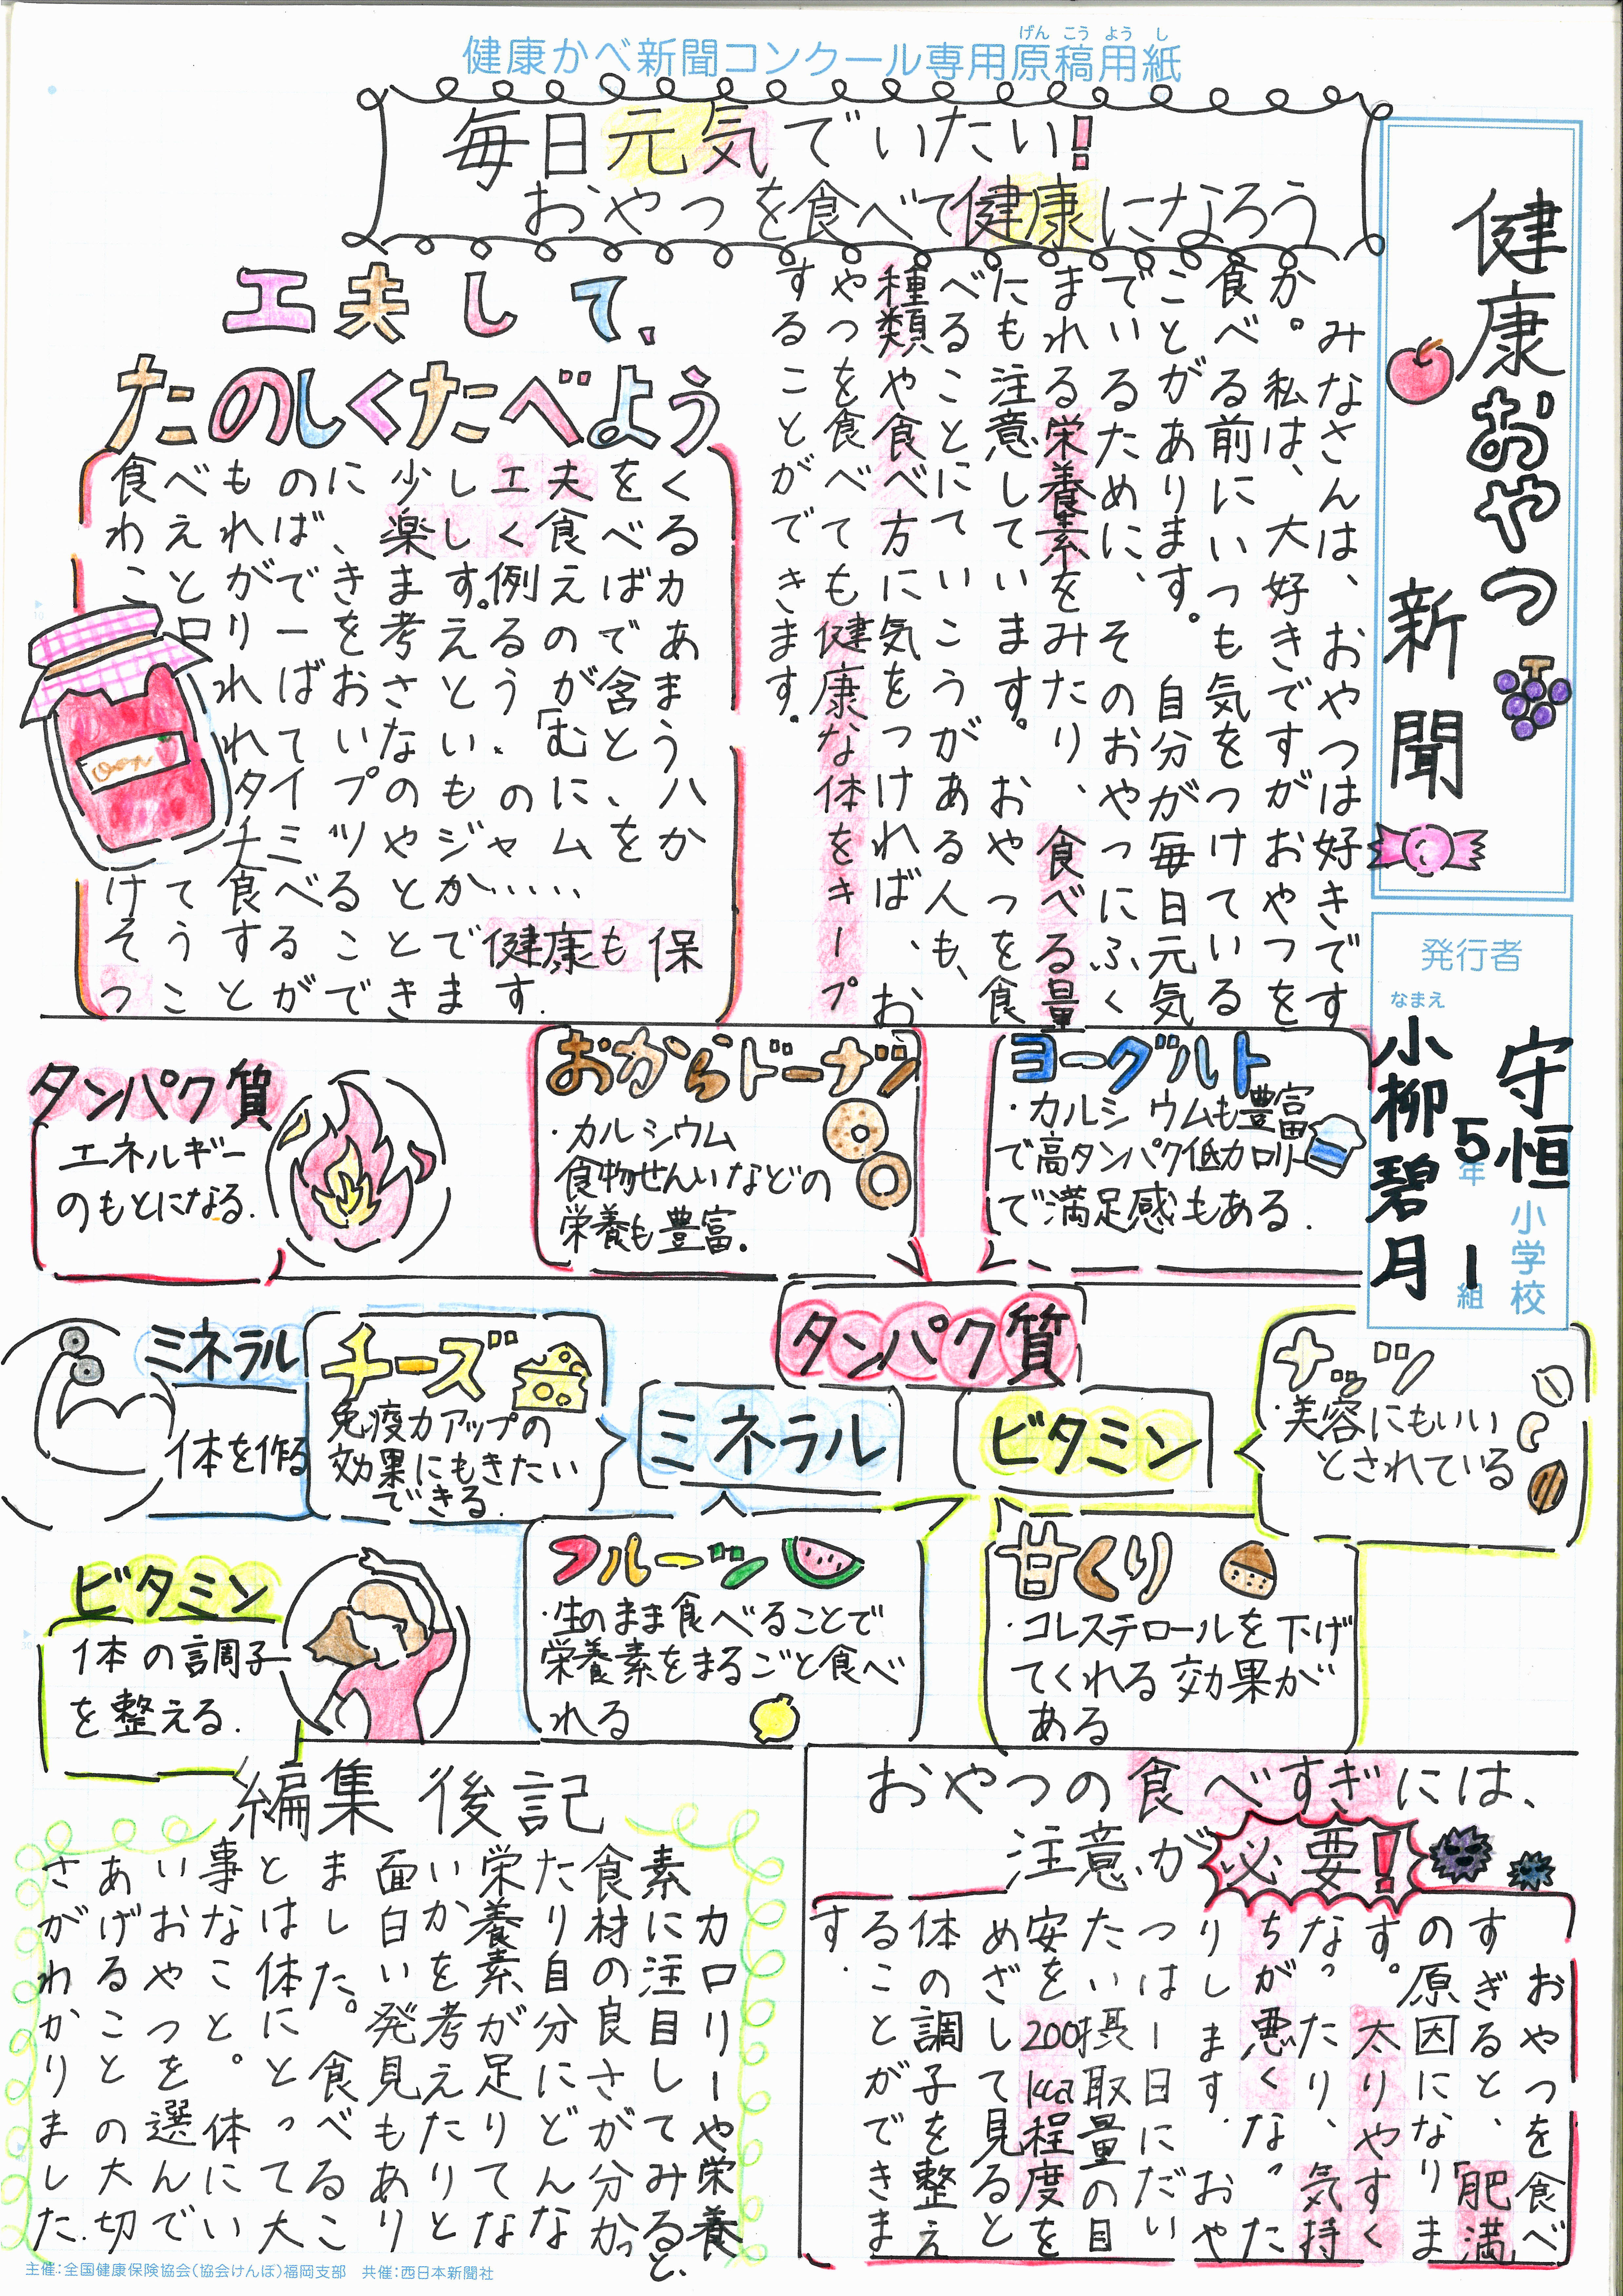 健康かべ新聞コンクール専用原稿用紙
げん こう よう し
健康おやつ
新聞
発行者
守恒小学校
5年1組
なまえ
小柳碧月
毎日元気でいたい!
おやつを食べて健康になろう
みなさんは、おやつは好きです
か。私は、大好きですがおやつを
食べる前にいつも気をつけている
ことがあります。自分が毎日元気
でいるために、そのおやつにふく
まれる栄養素をみたり、食べる量
にも注意しています。おやつを食
べることにていこうがある人も、
種類や食べ方に気をつければ、お
やつを食べても健康な体をキープ
することができます。
工夫して、
たのしくたべよう
食べものに少し工夫をく
わえれば、楽しく食べる
ことができます。例えばカ
ロリーをおさえるのであ
ればおさとうが含ま
れていない、「むとう
タイプのもの」に、ハ
チミツやジャムをか
けて食べるとか……
そうすることで健康も保
つことができます.
ヨーグルト
・カルシウムも豊富
で高タンパク低カロリー
で満足感もある.
おからドーナツ
・カルシウム
食物せんいなどの
栄養も豊富.
タンパク質
エネルギー
のもとになる.
タンパク質
ミネラル
ビタミン
ナッツ
・美容にもいい
とされている
チーズ
免疫力アップの
効果にもきたい
できる.
ミネラル
体を作る
甘くり
・コレステロールを下げ
てくれる効果が
ある
フルーツ
・生のまま食べることで
栄養素をまるごと食べ
れる
ビタミン
体の調子
を整える.
おやつの食べすぎには、
注意が必要!
おやつを食べ
すぎると、「肥満」
の原因になりま
す。太りやすく
なったり、気持
ちが悪くなった
りします.おや
つは一日にだい
たい摂取量の目
安を200kcal程度を
めざして見ると
体の調子を整え
ることができま
す.
編集後記
カロリーや栄養
素に注目してみると、
食材の良さが分かっ
たり自分にどんな
栄養素が足りてな
いかを考えたりと
面白い発見もあり
ました。食べるこ
とは体にとって大
事なこと。体にい
いおやつを選んで
あげることの大切
さがわかりました.
主催:全国健康保険協会(協会けんぽ)福岡支部 共催:西日本新聞社